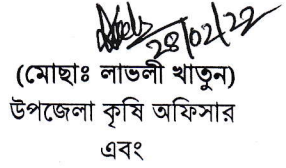 28/02/22
(মোছাঃ লাভলী খাতুন)
উপজেলা কৃষি অফিসার
এবং